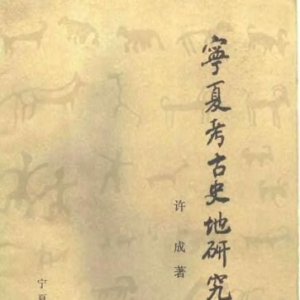 宁夏考古史地研究
许成著
宁夏